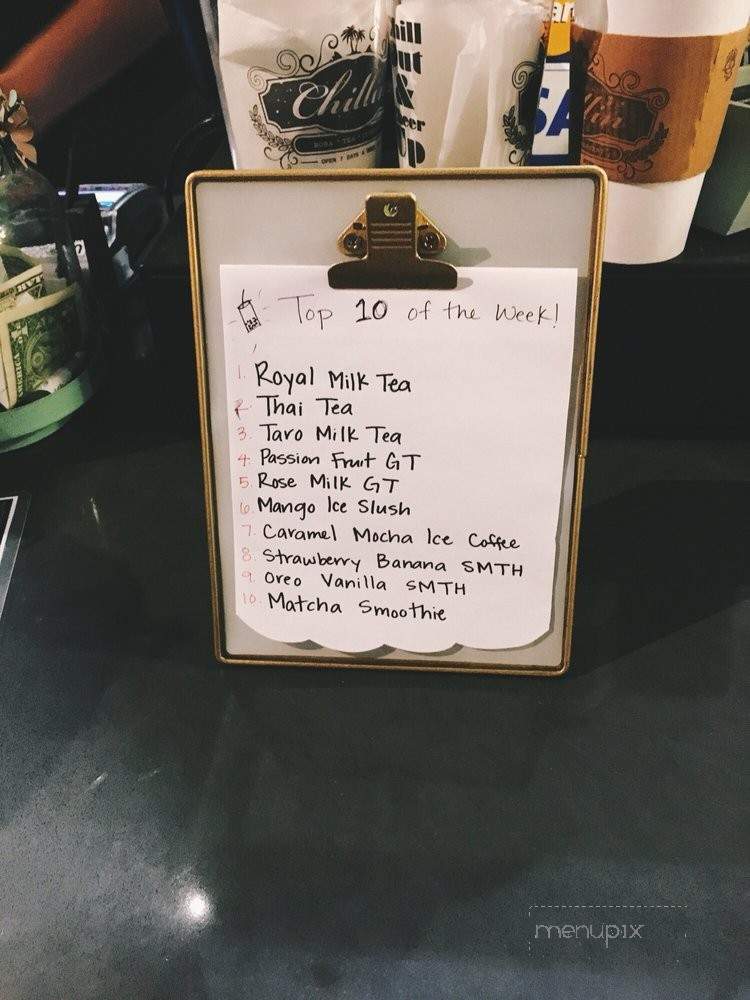 Chill
BOBA • TEA
OPEN 7 DAYS A
hill
out
&
UP
SA
Top 10 of the Week!
1. Royal Milk Tea
2. Thai Tea
3. Taro Milk Tea
4. Passion Fruit GT
5. Rose Milk GT
6. Mango Ice Slush
7. Caramel Mocha Ice Coffee
8. Strawberry Banana SMTH
9. Oreo Vanilla SMTH
10. Matcha Smoothie
menupix